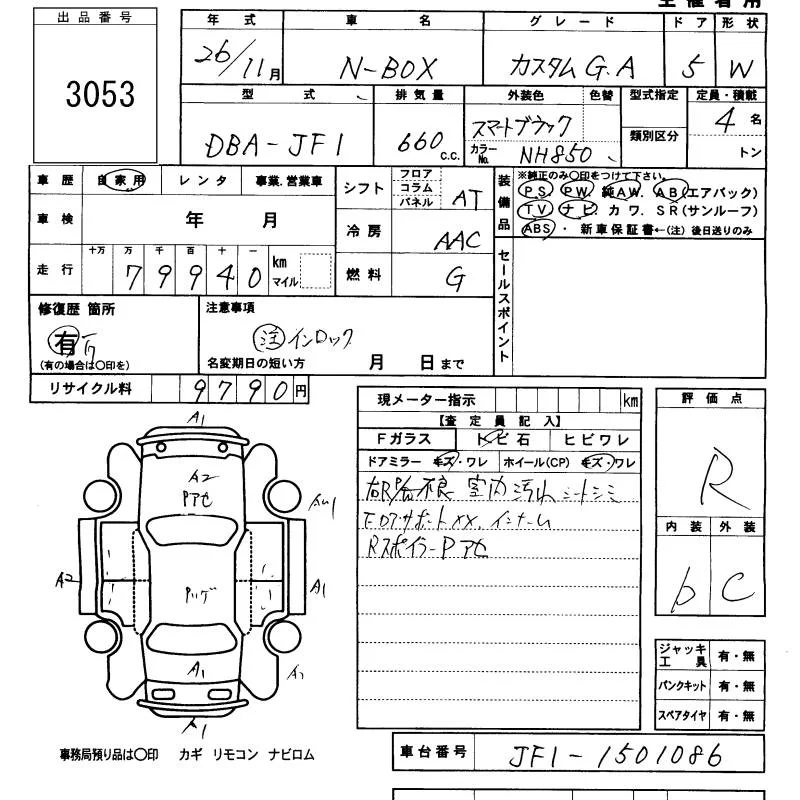 主催者用
出品番号
3053
年式 車名 グレード ドア 形状
26/11月 N-BOX カスタム G.A 5 W
型式 排気量 外装色 色替 型式指定 定員・積載
DBA-JF1 660 C.C. スマートブラック 類別区分 4名
カラーNo. NH850 トン
車歴 自家用 レンタ 事業.営業車
シフト フロア コラム パネル AT
車検 年 月
冷房 AAC
走行 十万 万 千 百 十 一
79940 km マイル
燃料 G
装備品 ※純正のみ○印をつけて下さい。
PS PW 純AW. AB(エアバック)
TV ナビ. カワ. SR(サンルーフ)
ABS ・ 新車保証書←(注)後日送りのみ
セールスポイント
修復歴 箇所
有
(有の場合は○印を)
注意事項
注 インロック
名変期日の短い方 月 日まで
リサイクル料 9790円
現メーター指示 km
【査定員記入】
Fガラス トビ石 ヒビワレ
ドアミラー キズ・ワレ ホイール(CP) キズ・ワレ
不良 室内汚れ シートシミ
サポートXX.
RスポイラーPアセ
評価点
R
内装 外装
b C
A1
A2
Pアセ
A2
A1
A1
A1
A1
ジャッキ工具 有・無
パンクキット 有・無
スペアタイヤ 有・無
事務局預り品は○印 カギ リモコン ナビロム
車台番号 JF1-1501086